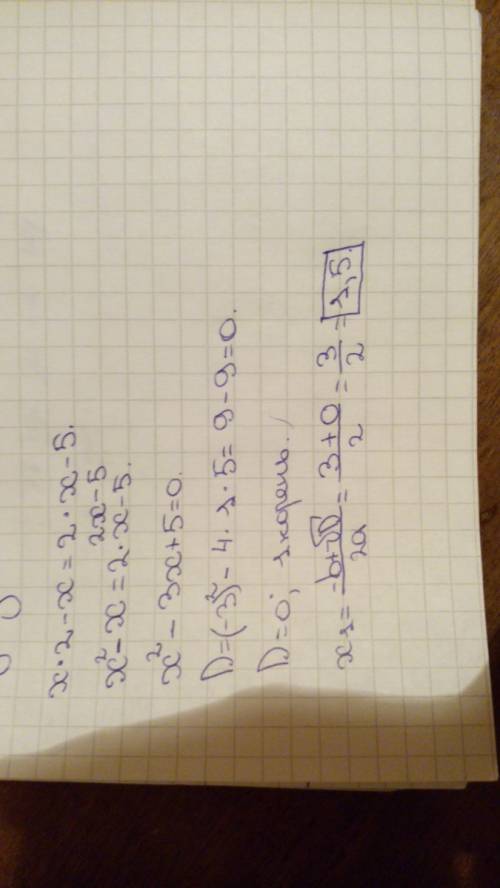 x·2-x=2·x-5.
2x-5
x²-x=2·x-5.
x²-3x+5=0.
D=(-3)²-4·1·5=9-9=0.
D=0; 1 корень.
x₁=\frac{-b+√D}{2a}=\frac{3+0}{2}=\frac{3}{2}=1,5.